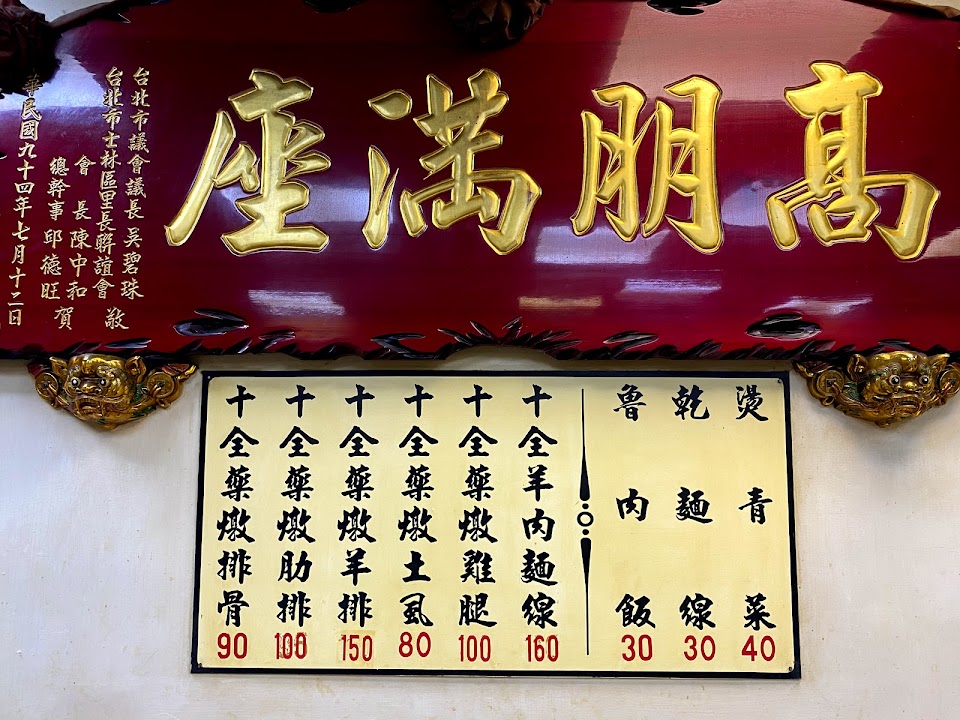 高朋滿座
台北市議會議長吳碧珠
台北市士林區里長聯誼會 敬
會長陳中和
總幹事邱德旺 賀
華民國九十四年七月十二日
燙青菜 40
乾麵線 30
魯肉飯 30
十全羊肉麵線 160
十全藥燉雞腿 100
十全藥燉土虱 80
十全藥燉羊排 150
十全藥燉肋排 100
十全藥燉排骨 90